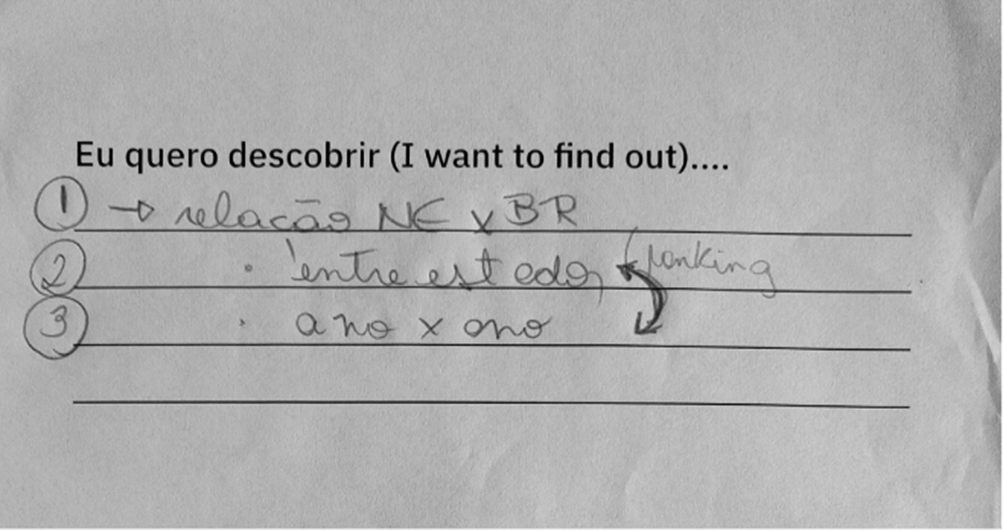 Eu quero descobrir (I want to find out)....
1 → relação NE x BR
2 · entre estados (ranking
3 · ano x ano